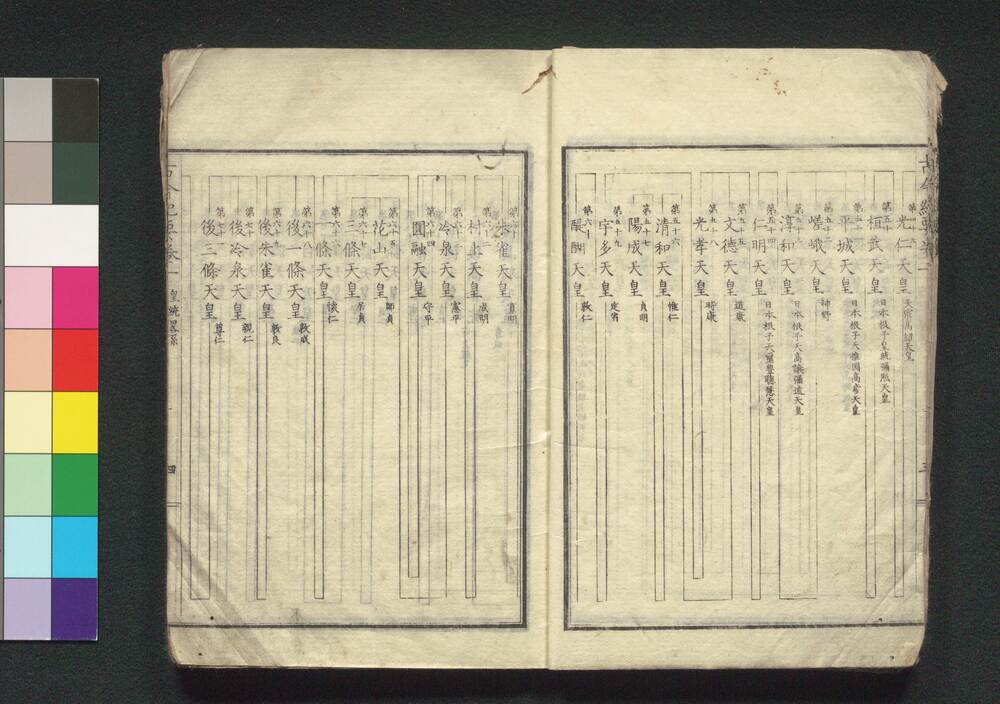 光仁天皇
天宗高紹天皇
桓武天皇
日本根子皇統彌照天皇
第五十一
平城天皇
日本根子天推國高彦天皇
第五十二
嵯峨天皇
神野
第五十三
淳和天皇
日本根子天高讓彌遠天皇
第五十四
仁明天皇
日本根子天璽豐聰慧天皇
第五十五
文德天皇
道康
第五十八
光孝天皇
時康
第五十六
清和天皇
惟仁
第五十七
陽成天皇
貞明
第五十九
宇多天皇
定省
第六十
醍醐天皇
敦仁
朱雀天皇
寛明
第六十二
村上天皇
成明
第六十三
冷泉天皇
憲平
第六十四
圓融天皇
守平
第六十五
花山天皇
師貞
第六十七
三條天皇
居貞
第六十六
一條天皇
懷仁
第六十八
後一條天皇
敦成
第六十九
後朱雀天皇
敦良
第七十
後冷泉天皇
親仁
第七十一
後三條天皇
尊仁
皇統畧系
四